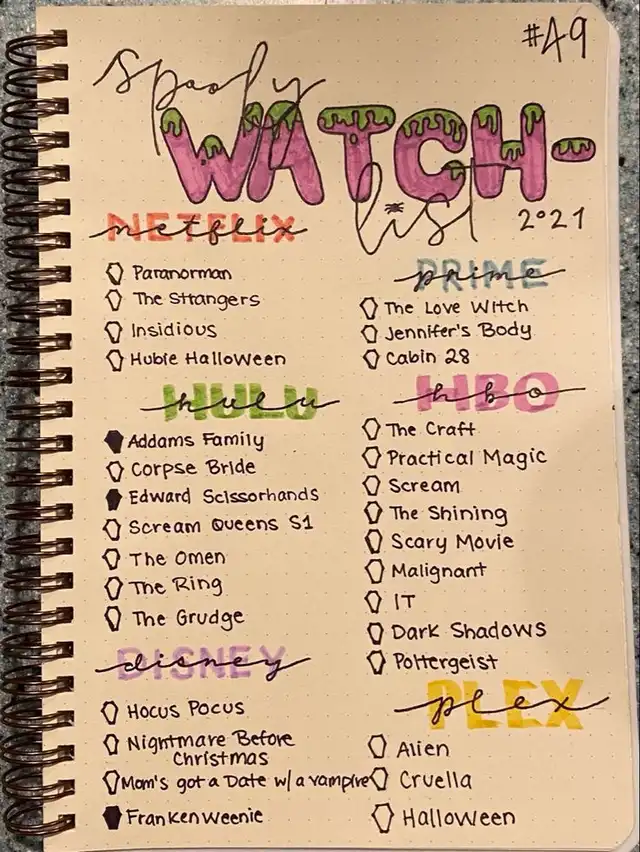 #49
Spooky
WATCH-
list
2021
NETFLIX
netflix
Paranorman
The Strangers
Insidious
Hubie Halloween
HULU
hulu
Addams Family
Corpse Bride
Edward Scissorhands
Scream Queens S1
The Omen
The Ring
The Grudge
DISNEY
disney
Hocus Pocus
Nightmare Before
Christmas
Mom's got a Date w/a vampire
Frankenweenie
PRIME
prime
The Love Witch
Jennifer's Body
Cabin 28
HBO
hbo
The Craft
Practical Magic
Scream
The Shining
Scary Movie
Malignant
IT
Dark Shadows
Poltergeist
PLEX
plex
Alien
Cruella
Halloween